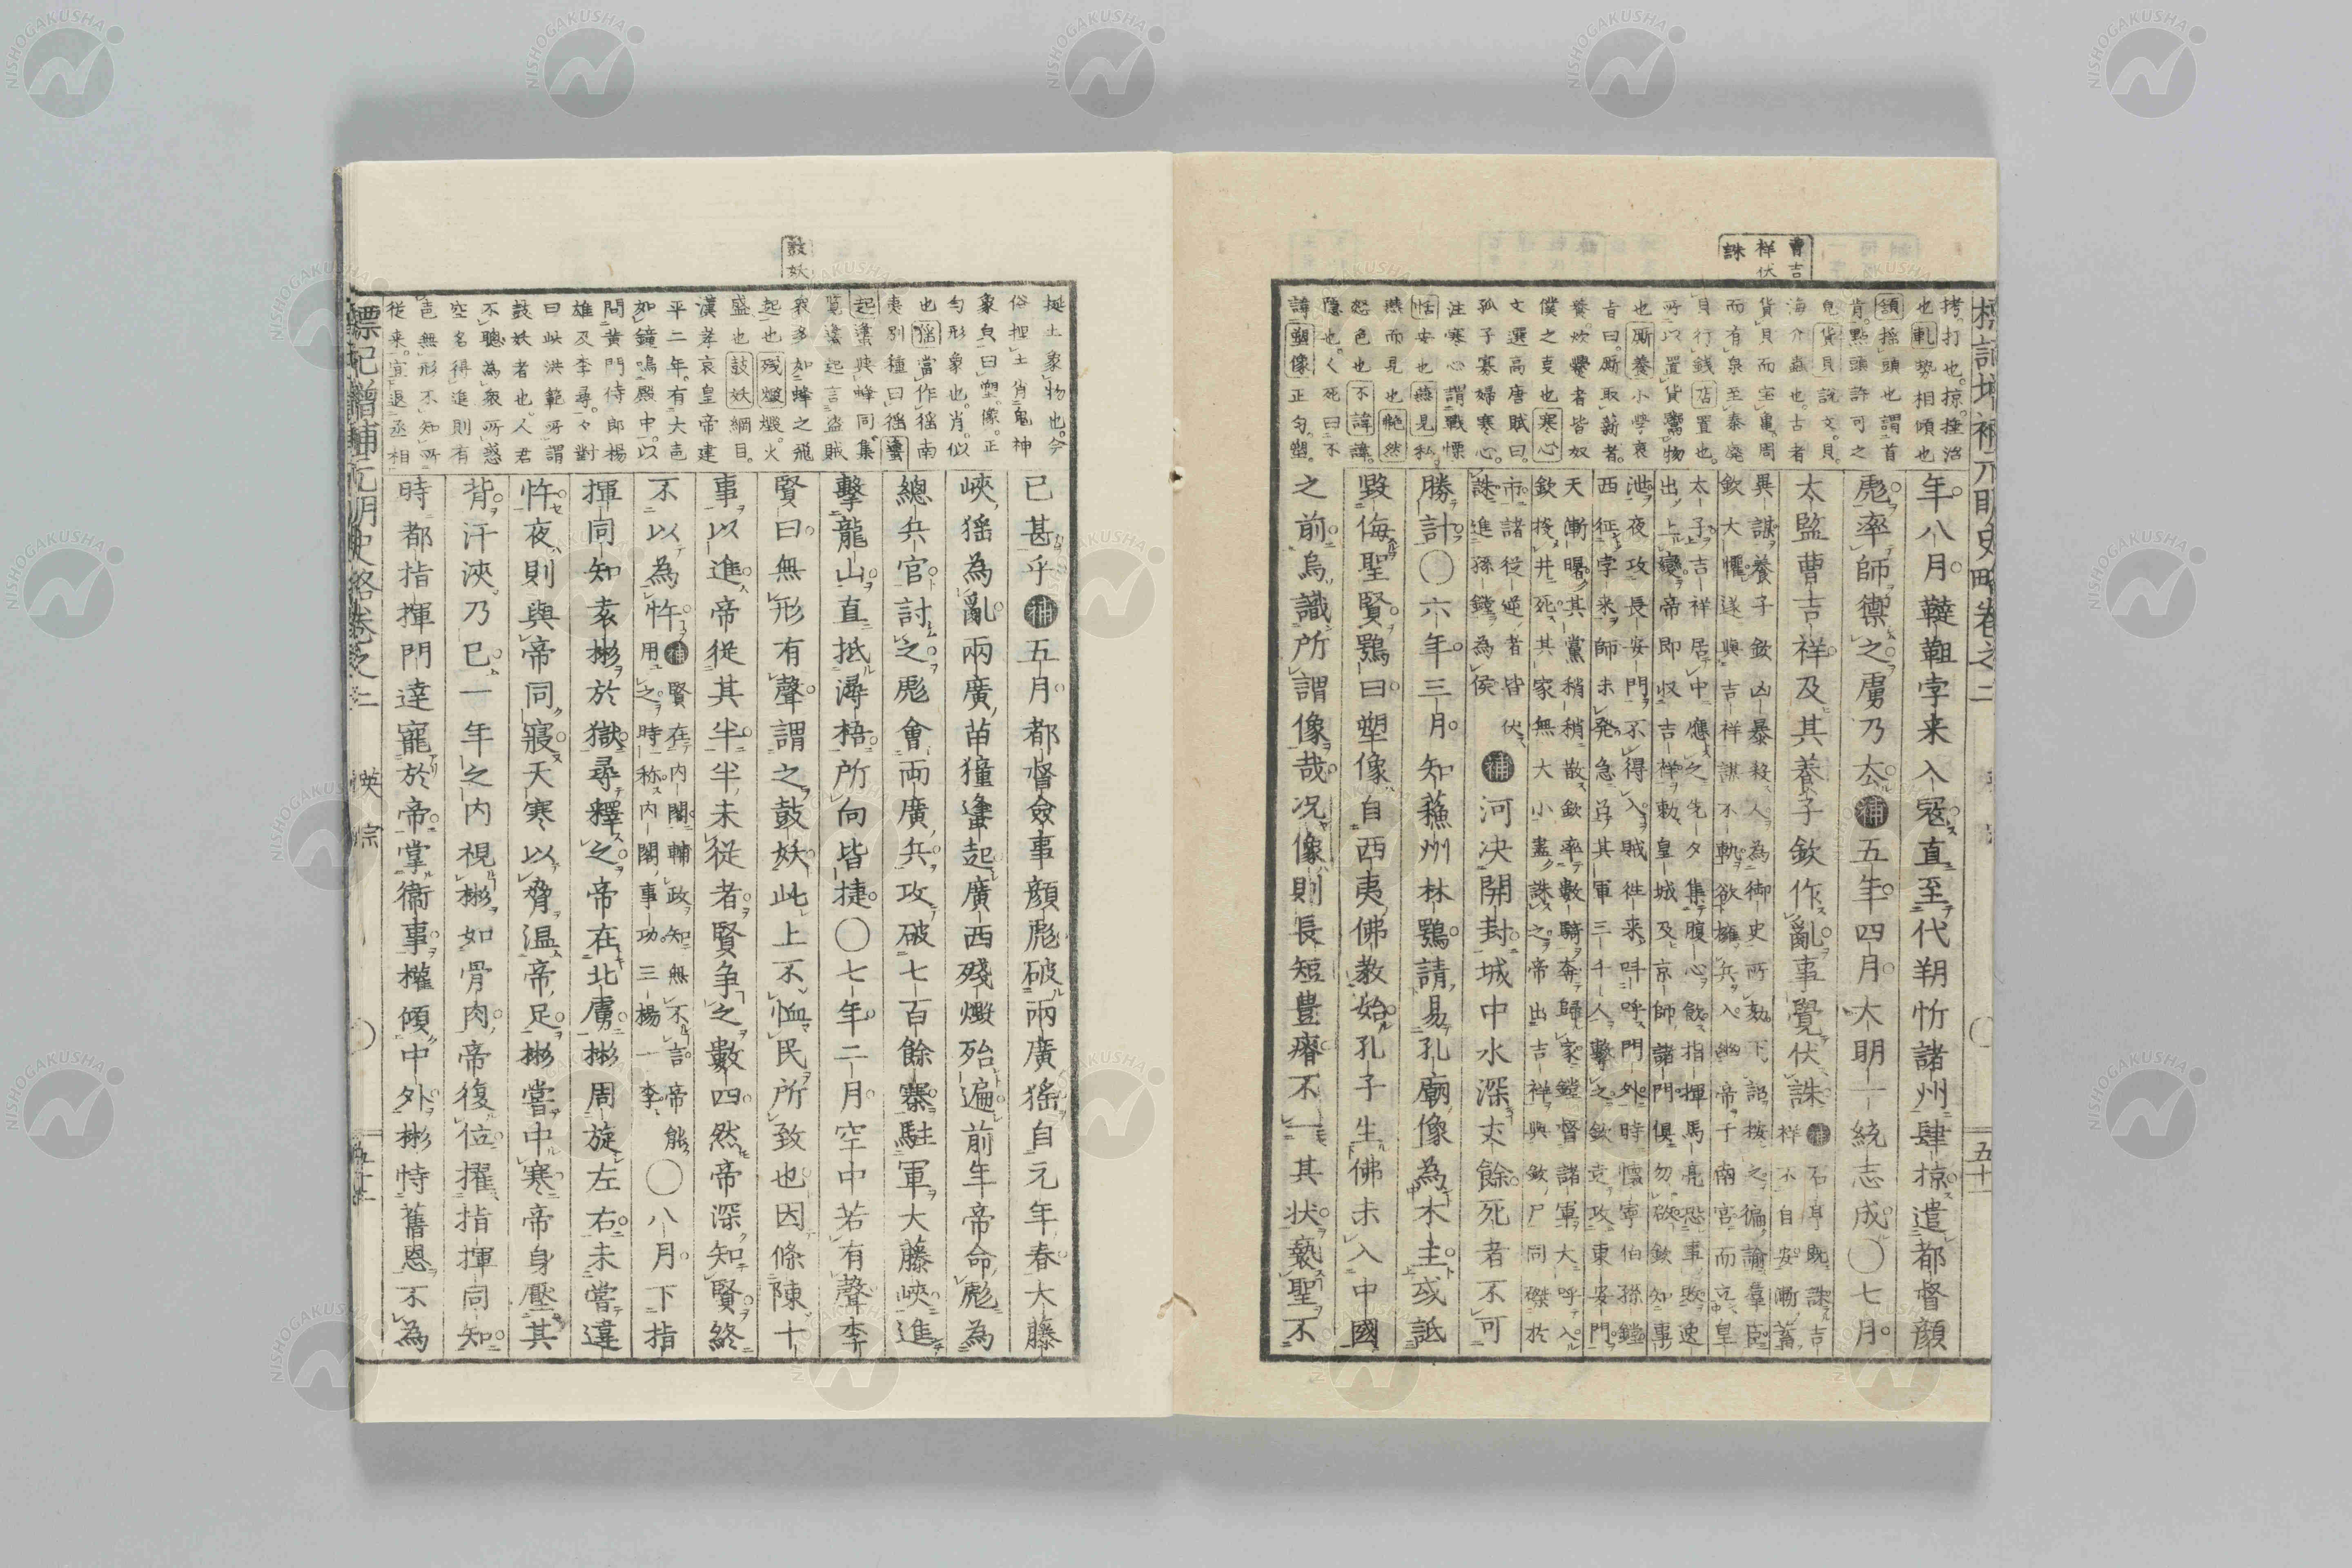 曹吉
祥伏
誅
拷打也。掠捶治
也軋勢相傾也
頷揺頭也謂首
肯。點頭許可之
皃貨貝說文。貝。
海介蟲也。古者
貨貝而宝亀。周
而有泉至秦廃
貝行錢店置也。
所以置貨鬻物
也廝養小學衰
㫖曰。廝取薪者。
養炊爨者皆奴
僕之吏也寒心
文選高唐賦曰。
孤子寡婦寒心。
注寒心謂戰慄
恬安也燕見私
燕而見也艴然
怒色也不諱諱。
隱也。人死曰不
諱塑像正勻。塑。
年八月韃靼孛来入寇直至代朔忻諸州肆掠遣都督顔
彪率師禦之虜乃厺補五年四月大明一統志成〇七月
太監曹吉祥及其養子欽作亂事覺伏誅補石亨既誅吉
祥不自安漸蓄
異謀養子欽凶暴殺人為御史所劾下詔按之徧諭羣臣
欽大懼遂與吉祥謀不軌欲擁兵入幽帝于南宫而立皇
太子吉祥居中應之先夕集腹心飲指揮馬亮恐事敗速
出上變帝即収吉祥敕皇城及京師諸門俱勿啟欽知事
泄夜攻長安門不得入賊徃来呌呼門外時懐寧伯孫鏜
西征孛来師未発急召其軍三千人擊之欽走攻東安門
天漸曙其黨稍稍散欽率數騎奔歸家鏜督諸軍大呼入
欽投井死其家無大小盡誅之帝出吉祥與欽尸同磔於
市諸従逆者皆伏
誅進孫鏜為侯補河决開封城中水深丈餘死者不可
勝計〇六年三月知蘓州林鶚請易孔廟像為木主或詆
毀侮聖賢鶚曰塑像自西夷佛教始孔子生佛未入中國
之前烏識所謂像哉况像則長短豊瘠不一其状褻聖不
五十一
鼓妖
挻土象物也。今
俗捏土肖鬼神
象皃曰塑。像。正
勻形象也。肖。似
也猺當作徭南
夷別種曰徭蠭
起蠭與蜂同集
覧蠭起言盗賊
衆多如蜂之飛
起也残燬燬。火
盛也鼓妖綱目。
漢孝哀皇帝建
平二年。有大声
如鐘鳴殿中。以
問黄門侍郎楊
雄及李尋。々對
曰此洪範所謂
鼓妖者也。人君
不聰為衆所惑
空名得進則有
声無形不知所
從来。宜退丞相
已甚乎補五月都督僉事顔彪破兩廣猺自元年春大藤
峽猺為亂兩廣苗獞蠭起廣西殘燬殆遍前年帝命彪為
總兵官討之彪會両廣兵攻破七百餘寨駐軍大藤峽進
擊龍山直抵潯梧所向皆捷〇七年二月空中若有聲李
賢曰無形有聲謂之鼓妖此上不恤民所致也因條陳十
事以進帝従其半半未従者賢争之數四然帝深知賢終
不以為忤補賢在内閣輔政知無不言帝能
用之時称内閣事功三楊一李〇八月下指
揮同知袁彬於獄尋釋之帝在北虜彬周旋左右未嘗違
忤夜則與帝同寢天寒以脅温帝足彬嘗中寒帝身壓其
背汗浹乃已一年之内視彬如骨肉帝復位擢指揮同知
時都指揮門達寵於帝掌衞事權傾中外彬恃舊恩不為
標記增補元明史略巻之二　英宗